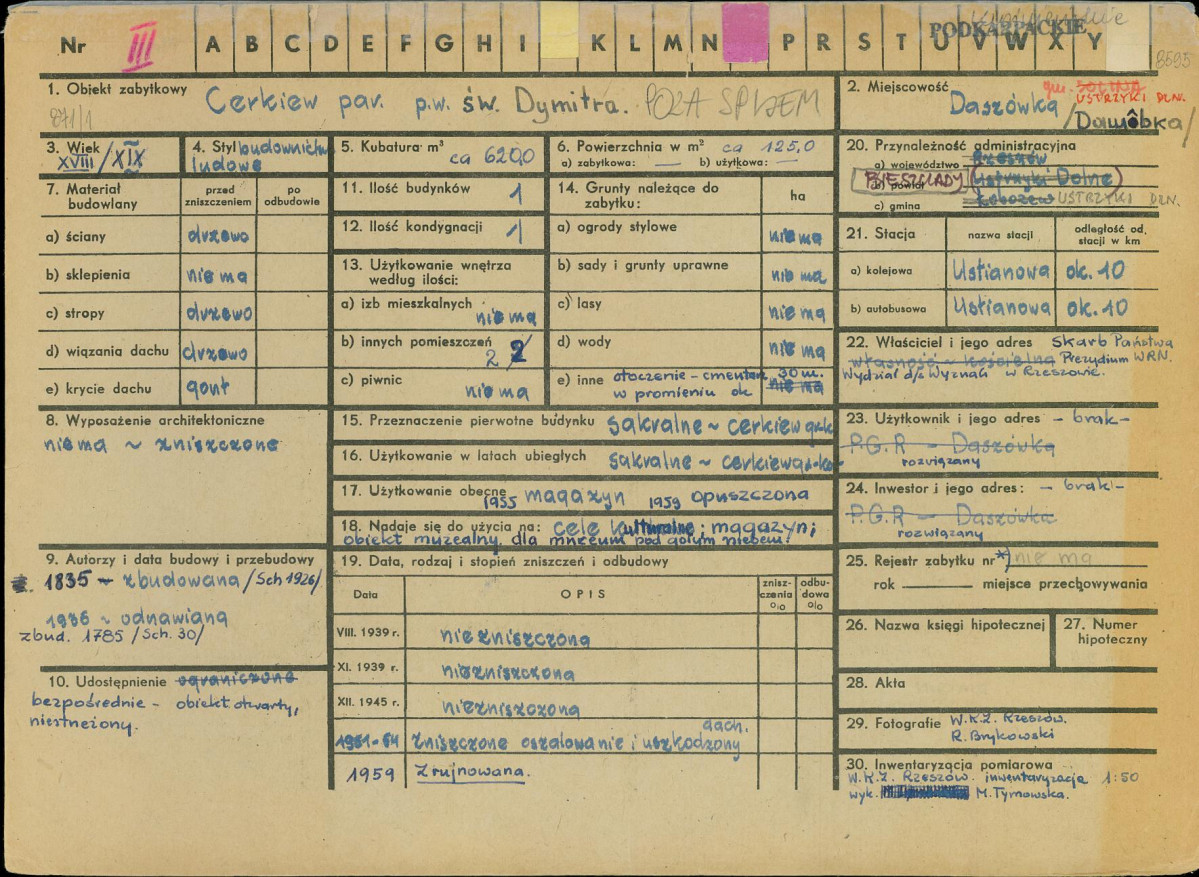 PODKARPACKIE
Nr III A B C D E F G H I K L M N P R S T U V W X Y
8595
1. Obiekt zabytkowy Cerkiew par. p.w. św. Dymitra. POZA SPISEM
871/1
2. Miejscowość gm. SOLINA
USTRZYKI DLN.
Daszówka /Daszôbka/
3. Wiek
XVIII /XIX
4. Styl budownictwo
ludowe
5. Kubatura m³
ca 620,0
6. Powierzchnia w m² ca 125,0
a) zabytkowa: — b) użytkowa: —
20. Przynależność administracyjna
a) województwo Rzeszów
b) powiat BIESZCZADY Ustrzyki Dolne
c) gmina Łobozew USTRZYKI DLN.
7. Materiał budowlany
przed zniszczeniem
po odbudowie
a) ściany drzewo
b) sklepienia nie ma
c) stropy drzewo
d) wiązania dachu drzewo
e) krycie dachu gont
11. Ilość budynków 1
12. Ilość kondygnacji 1
13. Użytkowanie wnętrza
według ilości:
a) izb mieszkalnych nie ma
b) innych pomieszczeń 2 2
c) piwnic nie ma
14. Grunty należące do
zabytku:
ha
a) ogrody stylowe nie ma
b) sady i grunty uprawne nie ma
c) lasy nie ma
d) wody nie ma
e) inne otoczenie – cmentarz 30 m.
w promieniu ok nie ma
21. Stacja
nazwa stacji
odległość od
stacji w km
a) kolejowa Ustianowa ok. 10
b) autobusowa Ustianowa ok. 10
22. Właściciel i jego adres Skarb Państwa
własność ~ kościelna Prezydium WRN.
Wydział d/s Wyznań w Rzeszowie.
8. Wyposażenie architektoniczne
nie ma ~ zniszczone
15. Przeznaczenie pierwotne budynku sakralne ~ cerkiew gr-k
16. Użytkowanie w latach ubiegłych sakralne ~ cerkiew gr-k
17. Użytkowanie obecne
1955 magazyn 1959 opuszczona
18. Nadaje się do użycia na: cele kulturalne; magazyn;
obiekt muzealny, dla muzeum pod gołym niebem!
23. Użytkownik i jego adres – brak –
P.G.R – Daszówka
rozwiązany
24. Inwestor i jego adres: – brak –
P.G.R – Daszówka
rozwiązany
9. Autorzy i data budowy i przebudowy
1835 – zbudowana /Sch 1926/
1936 ~ odnawiana
zbud. 1785 /Sch. 30/
10. Udostępnienie ograniczone
bezpośrednie – obiekt otwarty,
niestrzeżony.
19. Data, rodzaj i stopień zniszczeń i odbudowy
Data
OPIS
znisz-
czenia
%
odbu-
dowa
%
VIII. 1939 r. niezniszczona
XI. 1939 r. niezniszczona
XII. 1945 r. niezniszczona
dach.
1951-54 zniszczone oszalowanie i uszkodzony
1959 Zrujnowana.
25. Rejestr zabytku nr *) nie ma
rok — miejsce przechowywania
26. Nazwa księgi hipotecznej
27. Numer
hipoteczny
28. Akta
29. Fotografie W.K.Z. Rzeszów.
R. Brykowski
30. Inwentaryzacja pomiarowa
W.K.Z. Rzeszów. inwentaryzacja 1:50
wyk. M. Tymowska.